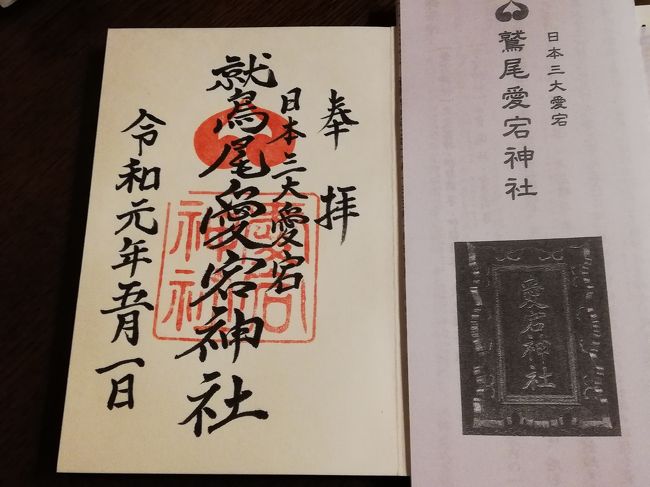 奉拝
日本三大愛宕
鷲尾愛宕神社
令和元年五月一日
愛宕神社
日本三大愛宕
鷲尾愛宕神社
愛宕神社